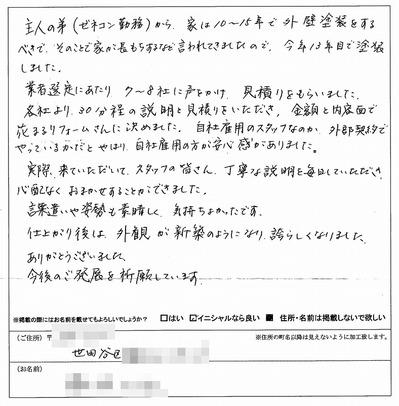 主人の弟(ゼネコン勤務)から、家は10〜15年で外壁塗装をする
べきで、そのことで家が長もちするなど言われてきましたので、今年13年目で塗装
しました。
業者選定にあたり、7〜8社に声をかけ、見積りをもらいました。
各社より、30分程の説明と見積りをいただき、金額と内容面で
花まるリフォームさんに決めました。自社雇用のスタッフなのか、外部契約で
やっているかだとやはり、自社雇用の方が安心感がありました。
実際、来ていただいて、スタッフの皆さん、丁寧な説明を毎日していただき、
心配なくおまかせすることができました。
言葉遣いや姿勢も素晴しく、気持ちよかったです。
仕上がり後は、外観が新築のようになり、誇らしくなりました。
ありがとうございました。
今後のご発展を祈願しています。
※掲載の際にはお名前を載せてもよろしいでしょうか? □はい ☑イニシャルなら良い ■ 住所・名前は掲載しないで欲しい
(ご住所) 〒 ※住所の町名以降は見えないように加工致します。
世田谷区
(お名前)